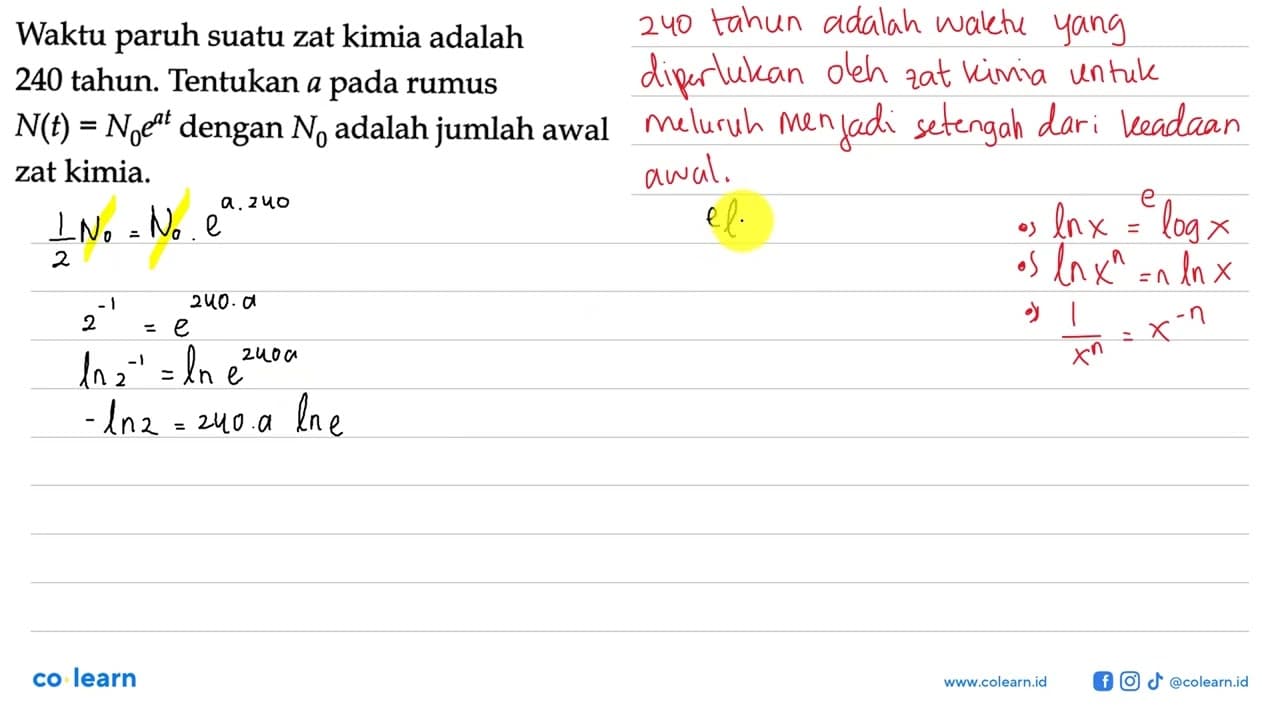 Waktu paruh suatu zat kimia adalah
240 tahun. Tentukan a pada rumus
N(t) = N₀eᵃᵗ dengan N₀ adalah jumlah awal
zat kimia.
1/2 N₀ = N₀ . e^(a.240)
2^(-1) = e^(240.a)
ln 2^(-1) = ln e^(240a)
-ln 2 = 240.a ln e
240 tahun adalah waktu yang
diperlukan oleh zat kimia untuk
meluruh menjadi setengah dari keadaan
awal.
el.
•) ln x = ᵉlog x
•) ln xⁿ = n ln x
•) 1/xⁿ = x⁻ⁿ
co·learn
www.colearn.id
@colearn.id